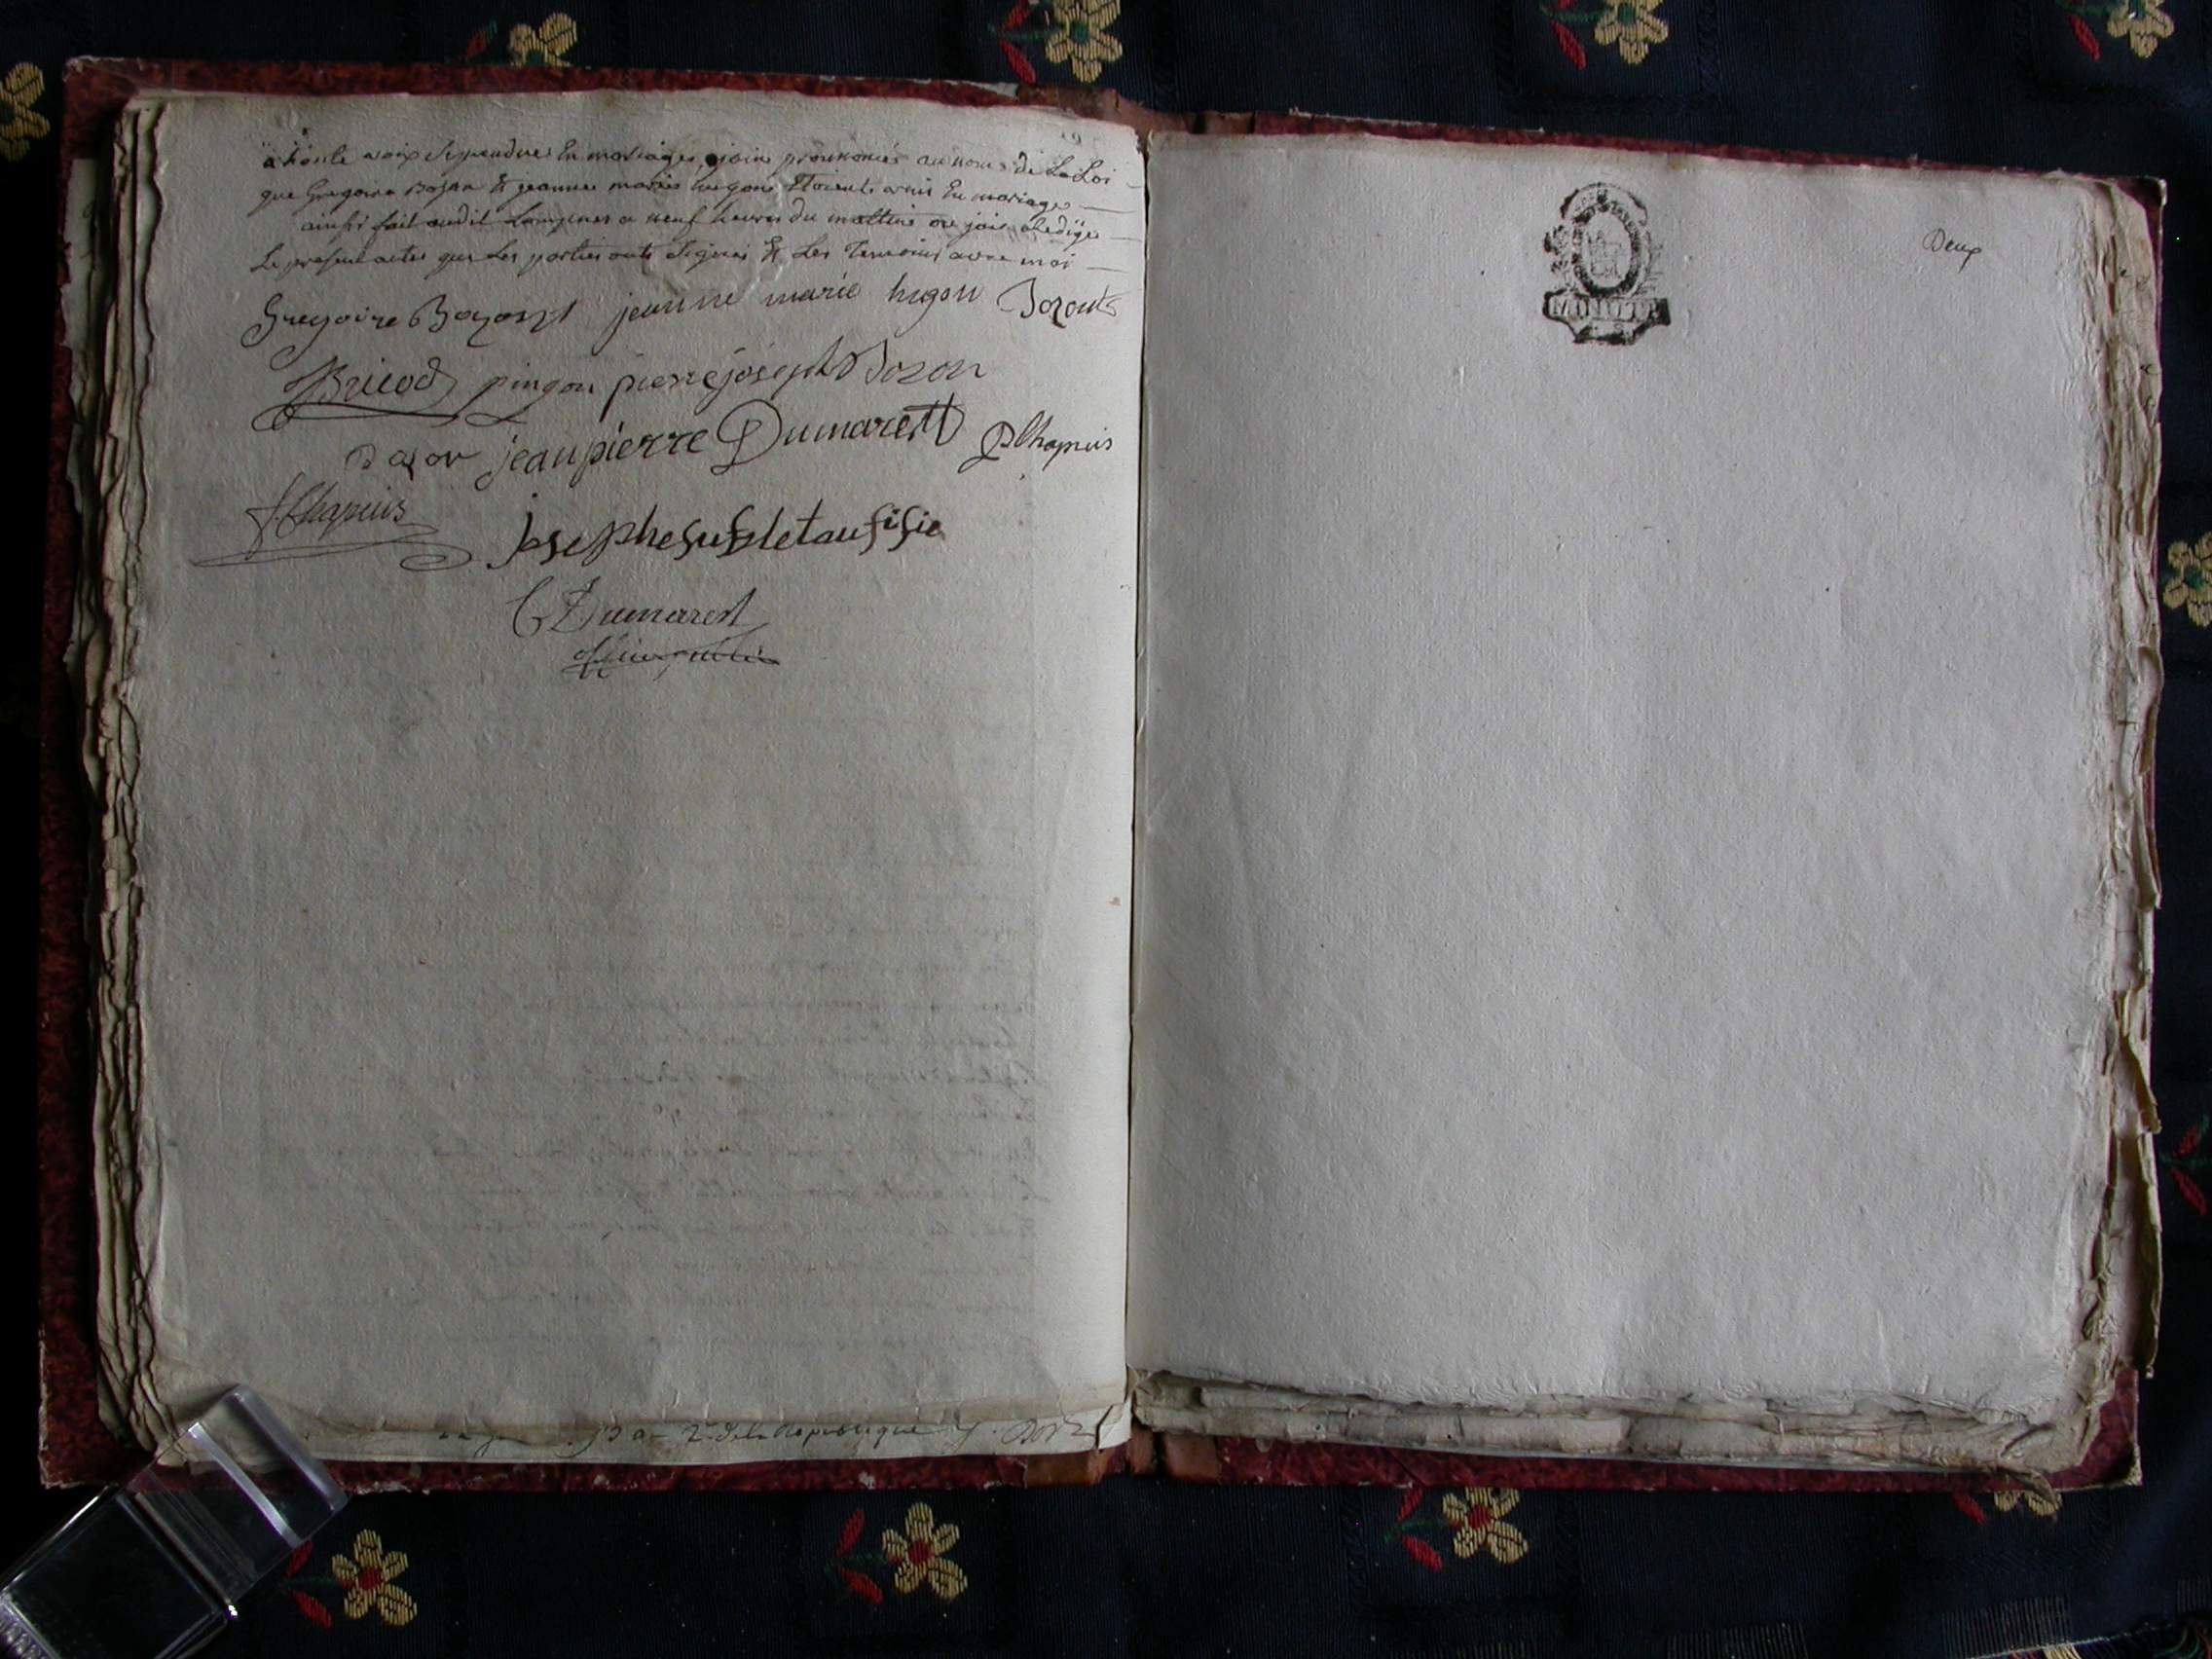 a haute voix Seprendre En mariage, j'ais prononcés au nom de La Loi
que Gregoire Bozon & jeanne marie hugon Etoients unis En mariage
ainsi fait audit a neuf heures du mattins ou jais Redigé
Le present actes que Les parties onts Signés & Les Temoins avec moi
Gregoire Bozon jeanne marie hugon Bozon
Bricod pingon pierre joseph Bozon
Bozon jean pierre Dumarest P Chapuis
f. Chapuis
josephe
C Dumarest
officier public
2e de la Republique
Deux
MINUTE